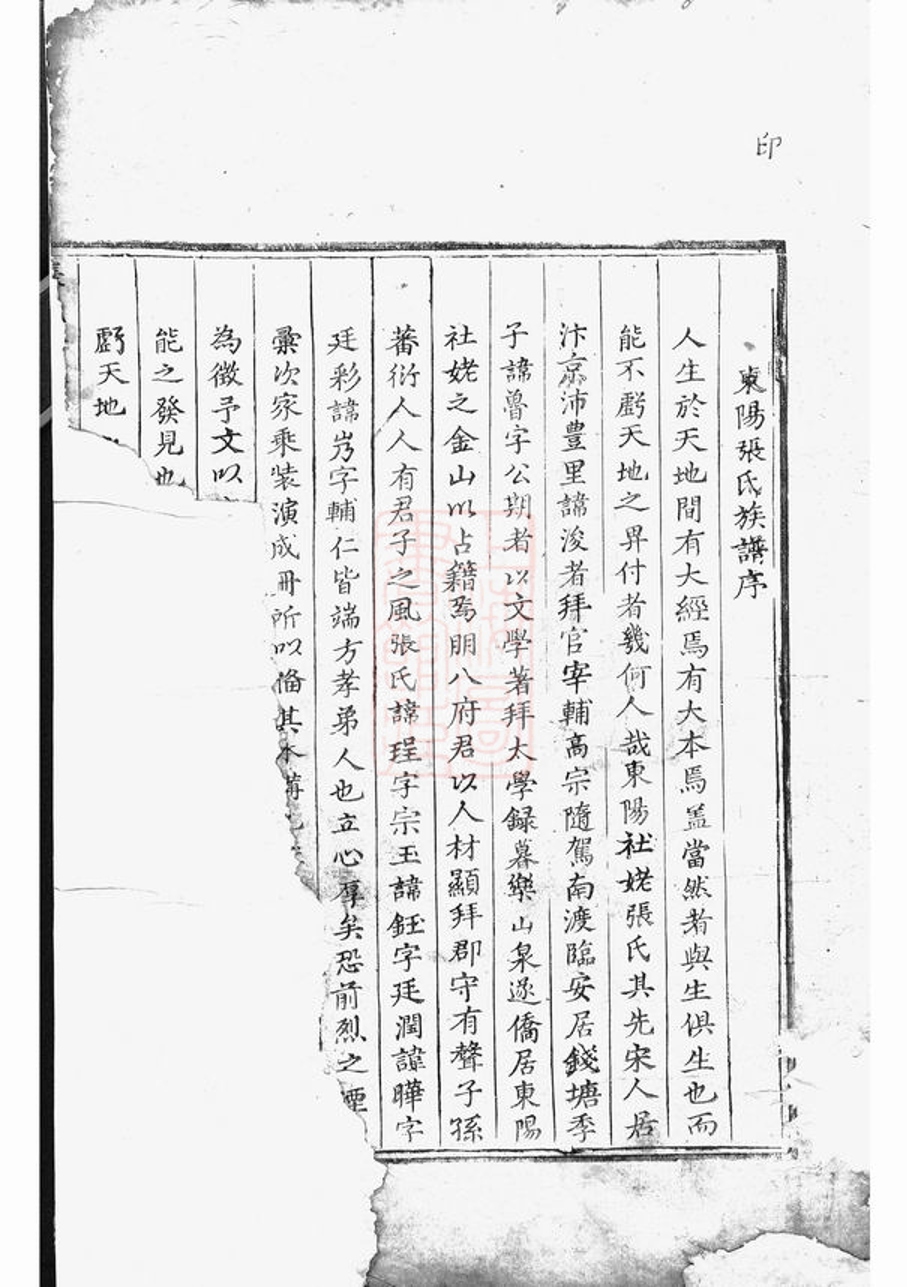 印
東陽張氏族譜序
人生於天地間有大經焉有大本焉盖當然者與生俱生也而
能不虧天地之畀付者幾何人哉東陽社姥張氏其先宋人居
汴京沛豊里諱浚者拜官宰輔高宗隨駕南渡臨安居錢塘季
子諱曽字公期者以文學著拜太學録暮樂山泉遂僑居東陽
社姥之金山以占籍焉明八府君以人材顯拜郡守有聲子孫
蕃衍人人有君子之風張氏諱珵字宗玉諱鈺字廷潤諱曄字
廷彩諱岃字輔仁皆端方孝弟人也立心厚矣恐前烈之湮
彙次家乘装演成冊所以偹其本
為徴予文以
能之發見也
虧天地